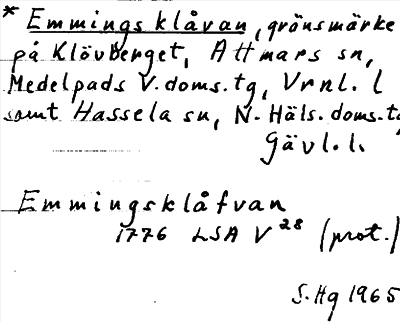 * Emmingsklåvan, gränsmärke
på Klövberget, Attmars sn,
Medelpads V. doms. tg, Vrnl. l
samt Hassela sn, N. Häls. doms. tg
Gävl. l.
Emmingsklåfvan
1776 LSA V 28 (prot.)
S. Hg 1965